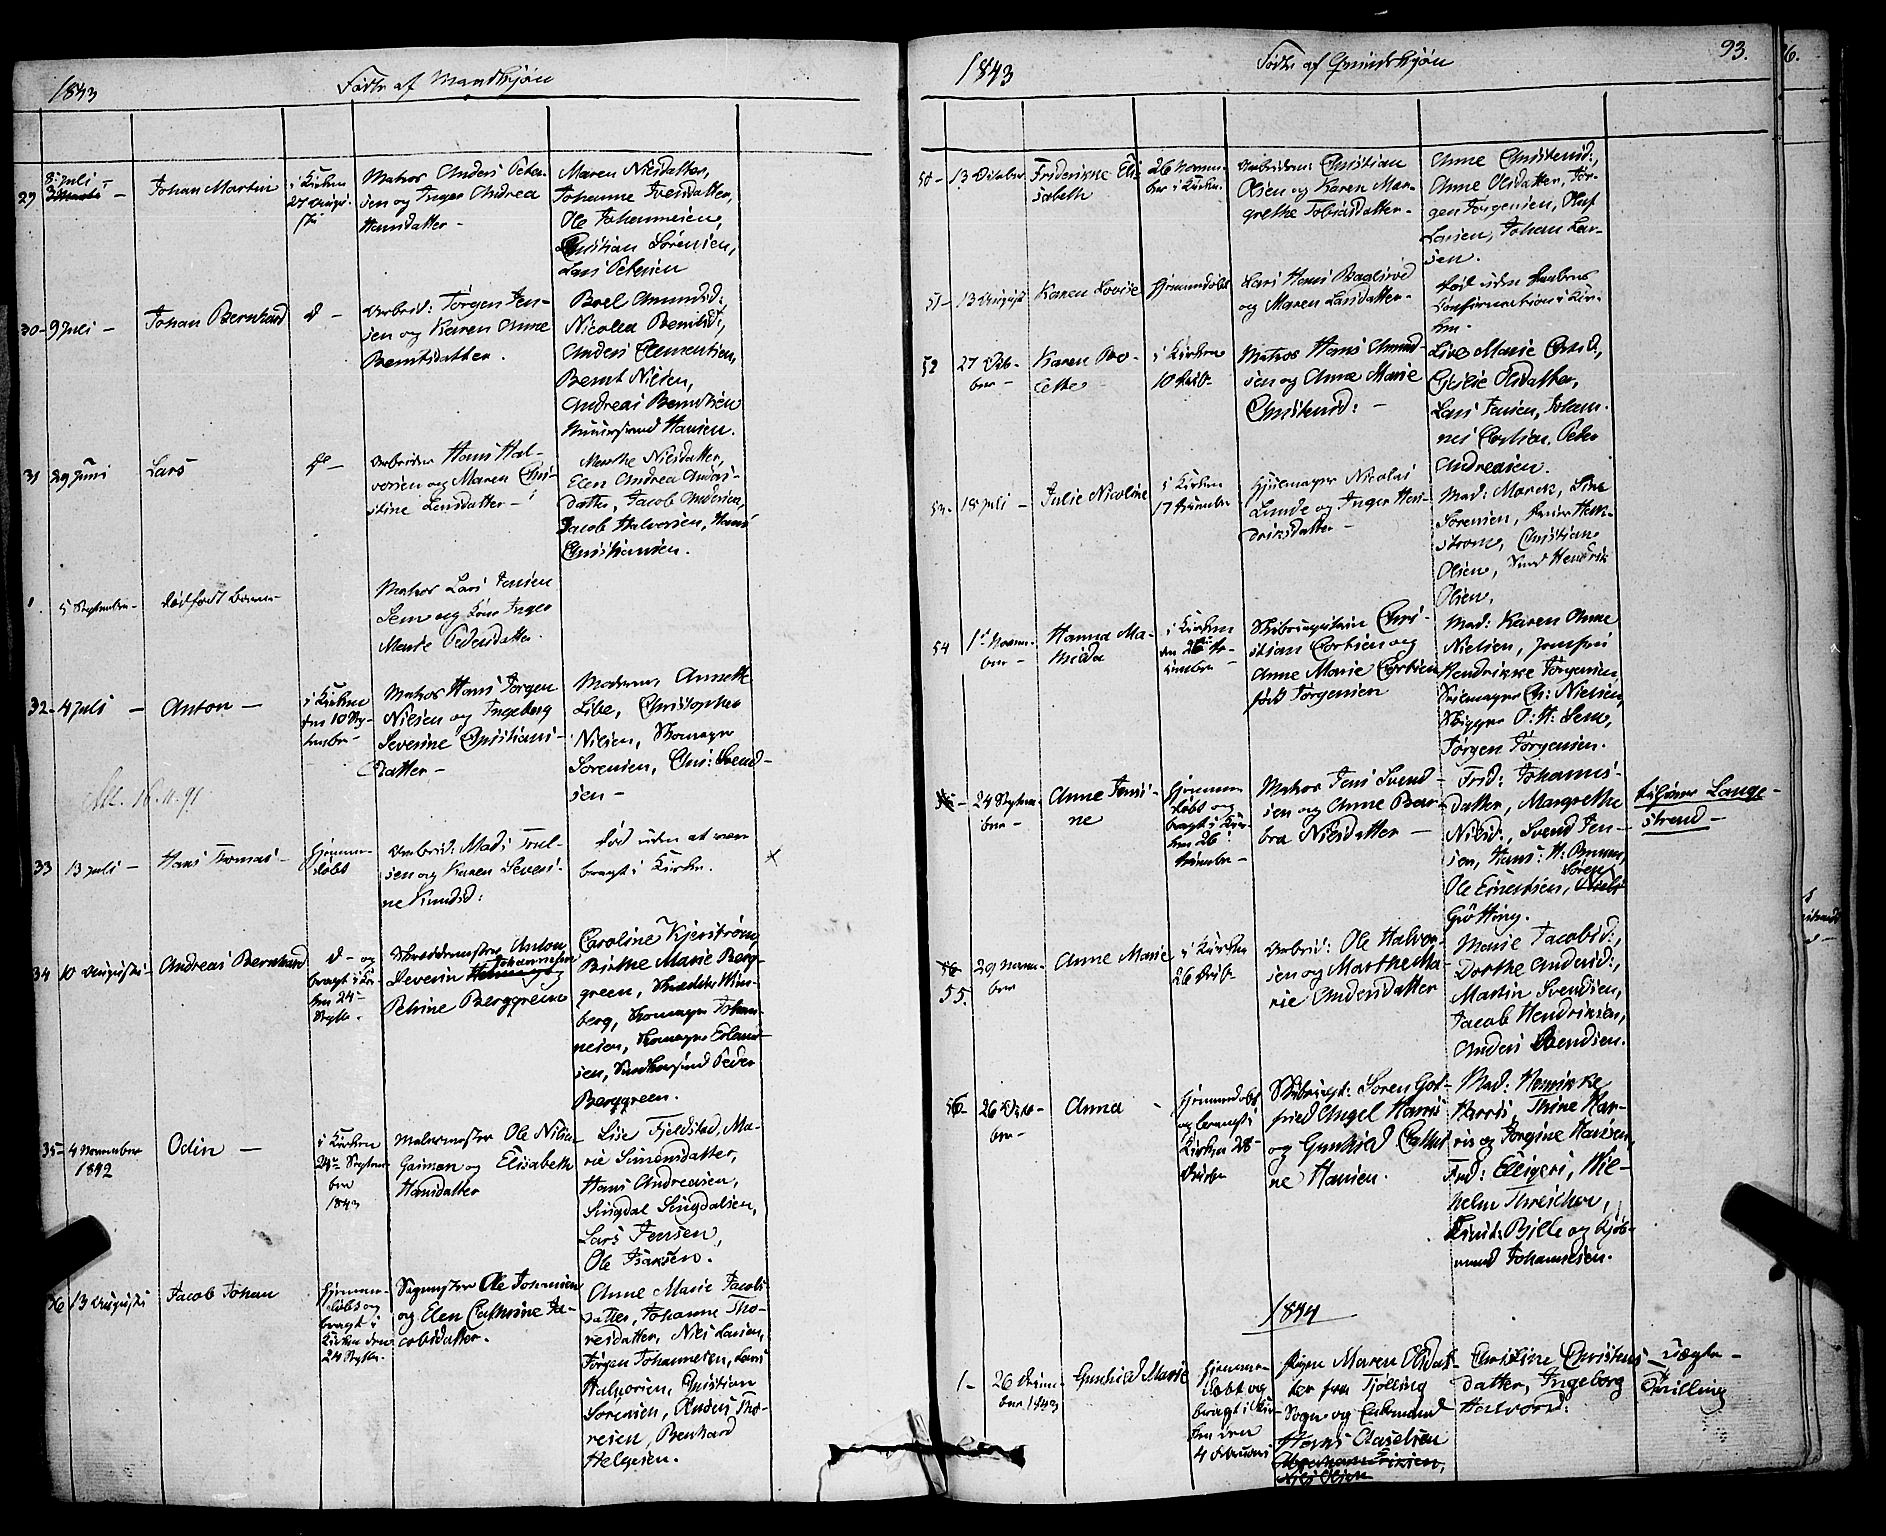 1843
Fødte af Mandkjøn
29
8 Juli -
Johan Martin
i Kirken
27 Augu-
sti
Matros Anders Peder-
sen og Inger Andrea
Hansdatter -
Maren Nielsdatter,
Johanne Iversdatter,
Ole Johannesen,
Christian Sörensen,
Lars Petersen
30 - 9 Juli -
Johan Bernhard
d -
Arbeid: Jörgen Jen-
sen og Karen Anne
Berntsdatter.
Boel Amunds:
Nicolea Berntsd:,
Anders Clementsen,
Bernt Nielsen,
Andreas Berntsen
Muursvend Hansen.
31 29 Juni
Lars
do -
Arbeider Hans Hal-
vorsen og Maren Chri-
stine Larsdatter -
Marthe Nielsdatter,
Elen Andrea Anders-
datter, Jacob Andersen,
Jacob Halvorsen, Hans
Christiansen.
1. 5 September -
dødfødt Barn -
Matros Lars Jensen
Sem og Kone Inger
Marie Pedersdatter.
32 - 4 Juli -
Anton -
i Kirken
den 10 Sep-
tember -
Matros Hans Jörgen
Nielsen og Ingeborg
Severine Christians-
datter -
Moderen, Annette
Lise, Christopher
Nielsen, Skomager
Sorensen, Chr: Svend-
sen -
Att. 16.11.91.
33 13 Juli -
Hans Thomas -
hjemme-
döbt
Arbeid: Mads Troel-
sen og Karen Severi-
ne Knudsd:
død uden at være
bragt i Kirke.
34 10 Augusti -
Andreas Bernhard
d - og
bragt i Kir-
ken 24-
Septbr.
Anton
Severin Johannesen
Petrine Berggreen
Caroline Kjerström,
Birthe Marie Berg-
green,
berg, Skomager Johan-
nesen, Skomager Erland-
sen, Peder
Berggreen.
35 - 4 November
1842
Odin -
i Kirken
24 - Septem-
ber
1843
Malermester Ole Nilsen
Gaiman og Elisabeth
Hansdatter
Lise Fjeldstad, Ma-
rie Simensdatter,
Hans Andreasen,
Singdal Singdalsen,
Lars Jensen,
Ole Isaksen.
36 13 Augusti
Jacob Johan
hjemme-
döbt og
bragt i
Kirken den
24 Septbr.
Ole Johansen
og Elen Cathrine Ja-
cobsdatter.
Anne Marie Jacobs
datter, Johanne Tho-
resdatter, Niels Larsen,
Jörgen Johannesen, Lars
Halvorsen, Christian
Sörensen, Anders Tho-
resen, Bernhard
Helgesen.
1843
Fødte af Qvindekjøn
93.
50 - 13 October
Frederikke Eli-
sabeth
26 Novem-
ber i Kirken
Arbeideren Christian
Olsen og Karen Mar-
grethe Tobiasdatter -
Anne Christensd:,
Anne Olsdatter, Jör-
gen Jörgensen, Oluf
Larsen, Johan Lar-
sen.
51 - 13 August
Karen Lovise
hjemmedøbt
Lars Hansen
og Maren Larsdatter -
død uden Daabens
Confirmation i Kir-
ken -
52 27 Octo-
ber -
Karen
i Kirken
10 Decbr
Matros Hans Amund-
sen og Anne Marie
Christensd: -
Lise Marie
Cicilie Olsdatter,
Lars Jensen, Johan-
nes Corlsen, Peder
Andreasen.
53 - 18 Juli -
Julie Nicoline
i Kirken
17 December
Hjulmager Nicolai
Lunde og Inger Hen-
driksdatter -
Mad: Marck, Sine
Sörensen,
Christian
Olsen, Hendrik
Olsen,
54 1st Novem-
ber -
Hanna Ma-
thilda
i Kirken
den 26 De-
cember -
Skibscapitain Chri-
stian Corlsen og
Anne Marie Corlsen
født Jörgensen
Mad: Karen Anne
Nielsen, Jomfru
Hendrikke Jörgensen,
Seilmager Ch: Nielsen,
Skipper O: H: Sem,
Jörgen Jörgensen.
24 Septem-
ber -
Anne Jensi-
ne
hjemme-
døbt og
bragt i Kir-
ken 26
December -
Matros Jens Svend-
sen og Anne Bar-
bra Nilsdatter -
Fred: Johannes-
datter, Margrethe
Nilsd:, Svend Jen-
sen, Hans: H:
Ole Einertsen, Sören
Grötting.
tilhører Lange-
strand -
55. 29 Novem-
ber
Anne Marie
i Kirken
26 Decbr
Arbeid: Ole Halvor-
sen og Marthe Ma-
rie Andersdatter
Marie Jacobsd:,
Dorthe Andersd:,
Martin Svendsen,
Jacob Hendriksen,
Anders Svendsen.
56 - 26 Octo-
ber -
Anna -
hjemmedøbt
og bragt i
Kirken 28
Decbr
Sören Got-
fried Angel Harris
og Gunhild Cathri-
ne Hansen.
Mad: Henrikke
Harris, Thrine Har-
ris og Jörgine Hansen,
Wil-
helm Threscher,
Bille og Kjöb-
mand Johannesen.
1844
1 - 26 Decem-
ber 1843
Gunhild Marie
hjemme-
døbt og
bragt i Kir-
ken den
4 Februari
Pigen Maren Olsdat-
ter fra Tjölling
Sogn og Enkemand
Hans Clausen
Niels Olsen
Christine Christens
datter, Ingeborg
Halvorsd:
uægte -
Tvilling